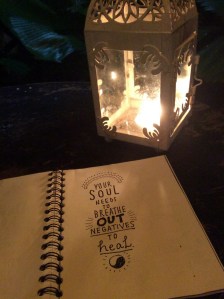 YOUR
SOUL
NEED
TO
BREATHE
OUT
NEGATIVES
TO
heal